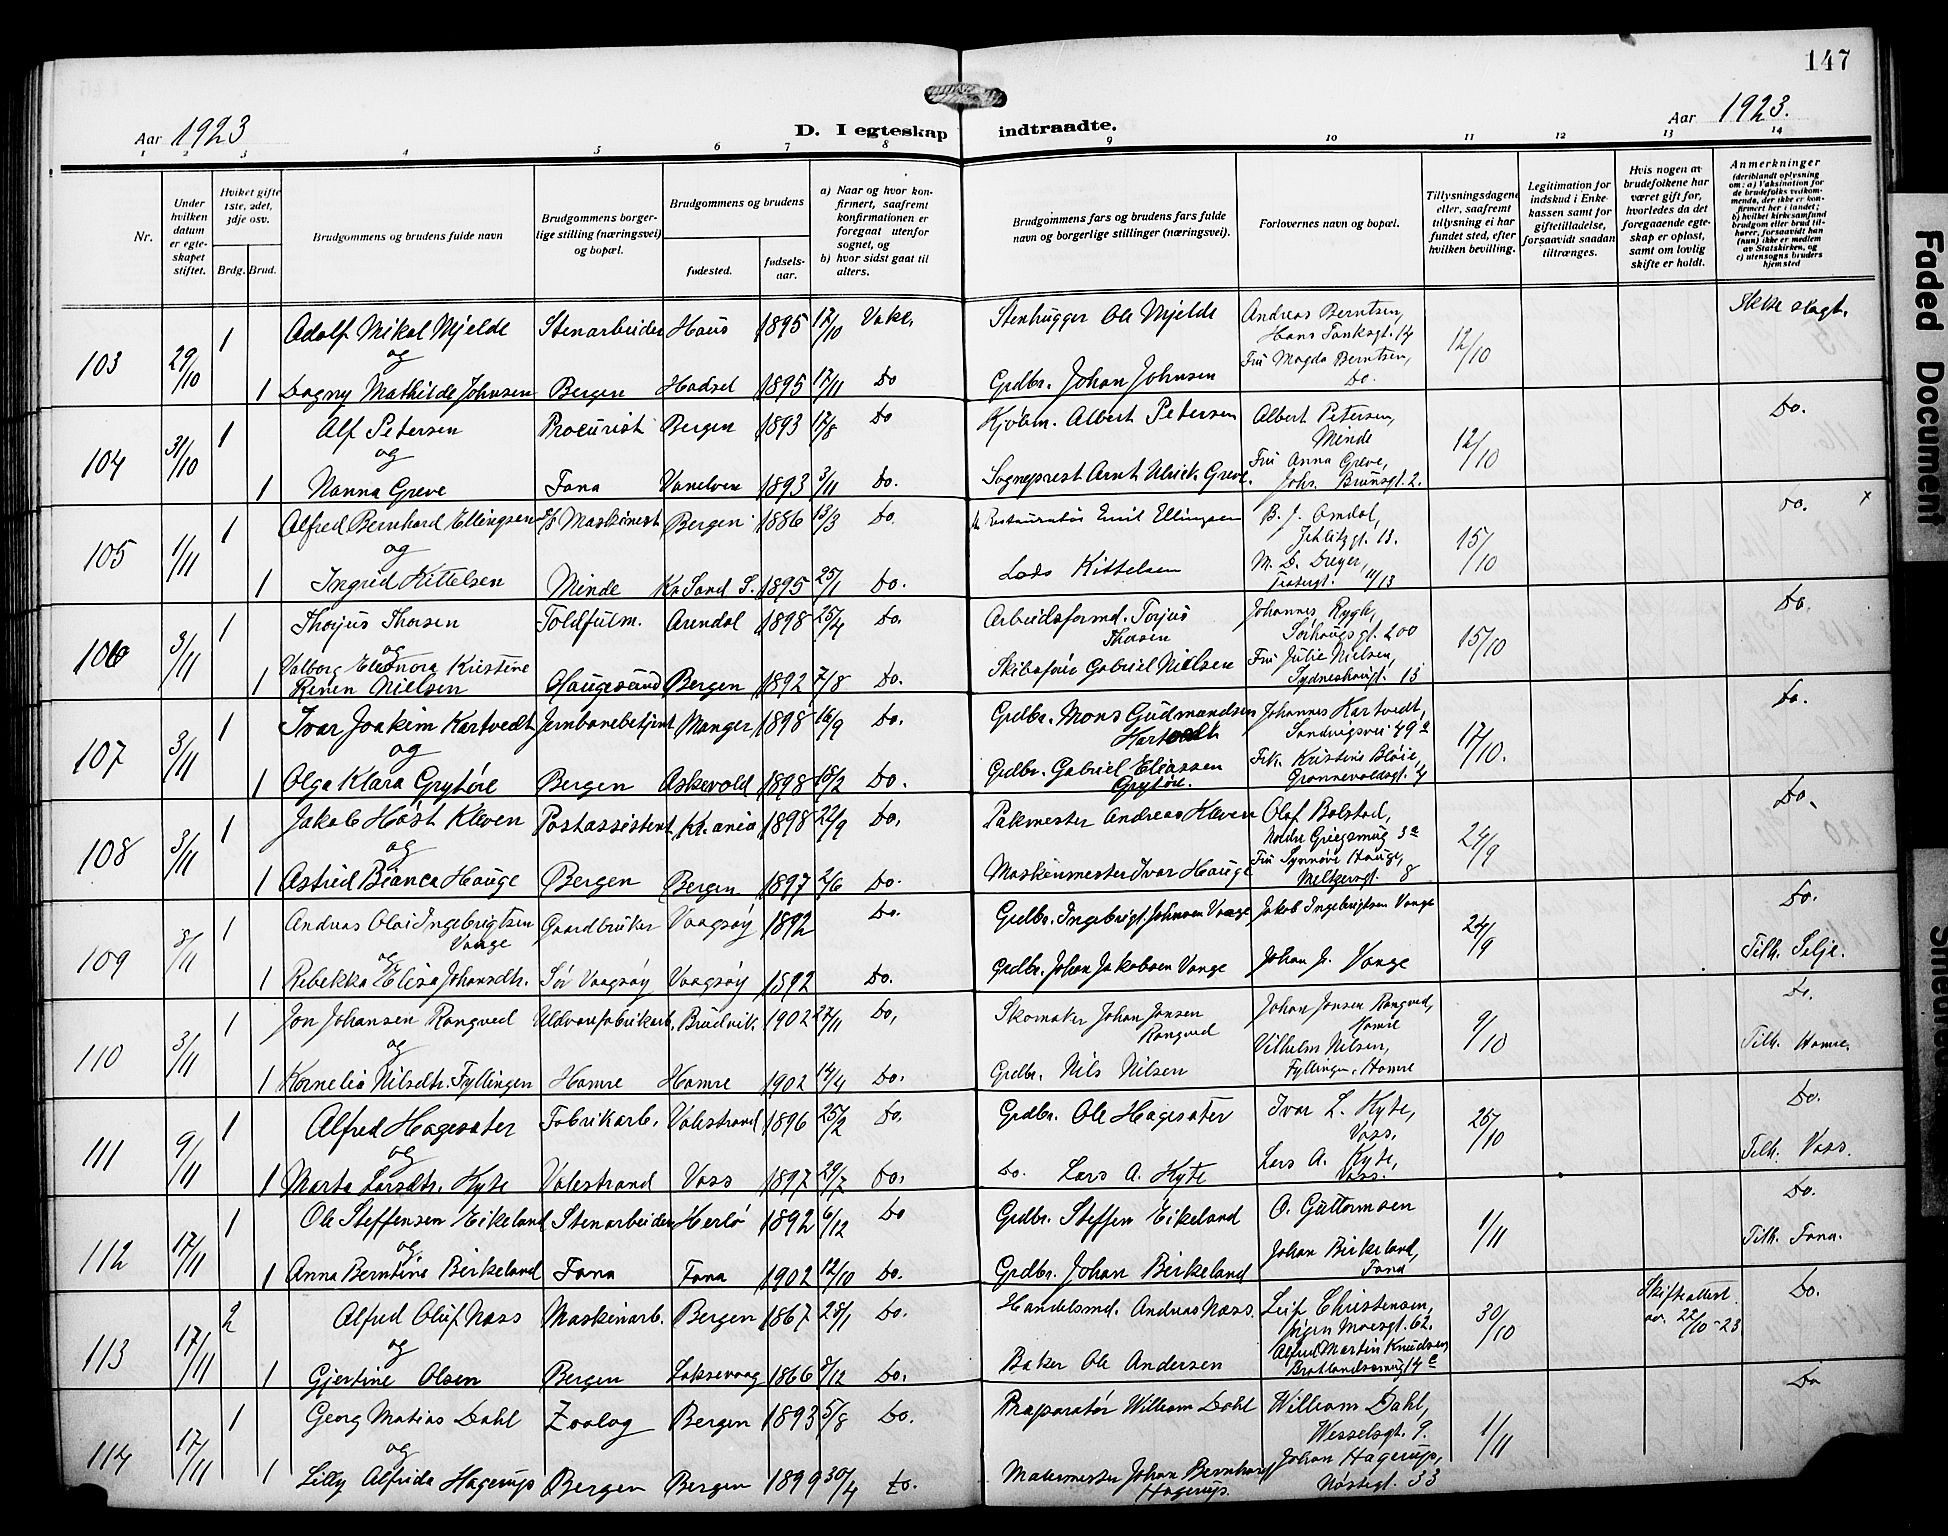 147
Aar 1923
D. I egteskap indtraadte.
Aar 1923.
1 2 3 4 5 6 7 8 9 10 11 12 13 14
Nr.
Under hvilken datum er egteskapet stiftet.
Hviket gifte 1ste, 2det, 3dje osv.
Brdg. Brud.
Brudgommens og brudens fulde navn
Brudgommens borgerlige stilling (næringsvei) og bopæl.
Brudgommens og brudens
fødested. fødselsaar.
a) Naar og hvor konfirmert, saafremt konfirmationen er foregaat utenfor sognet, og
b) hvor sidst gaat til alters.
Brudgommens fars og brudens fars fulde navn og borgerlige stillinger (næringsvei).
Forlovernes navn og bopæl.
Tillysningsdagene eller, saafremt tillysning ei har fundet sted, efter hvilken bevilling.
Legitimation for indskud i Enkekassen samt for giftetilladelse, forsaavidt saadan tiltrænges.
Hvis nogen av brudefolkene har været gift før, hvorledes da det foregaaende egteskap er opløst, samt om lovlig skifte er holdt.
Anmerkninger (deriblandt oplysning om: a) Vaksination for de brudefolks vedkommende, der ikke er konfirmert her i landet; b) hvilket kirkesamfund brudgom eller brud tilhører, forsaavidt han (hun) ikke er medlem av Statskirken, og c) utensogns bruders hjemsted
103 29/10 1 Adolf Mikal Mjelde Stenarbeider Haus 1895 17/10 Vake. Stenhugger Ole Mjelde Andreas Berntsen, Hans Tanksgt. 14 12/10 Ikke slægt.
og Fru Magda Berntsen, Do.
1 Dagny Mathilde Johnsen Bergen Hadsel 1895 17/11 Do Grdbr. Johan Johnsen
104 31/10 1 Alf Petersen Procurist Bergen 1893 17/8 Do Kjøbm. Albert Petersen Albert Petersen, Minde 12/10 Do.
og Fru Anna Greve, Johs. Brunsgt. 2.
1 Nanna Greve Fana Vanelven 1893 3/11 Do. Sogneprest Arnt Ulrick Greve.
105 1/11 1 Alfred Bernhard Ellingsen Maskinist Bergen 1886 13/3 Do. Restauratør Emil Ellingsen B. J. Omdal, 15/10 Do. x
og M. D. Dreyer,
1 Ingrid Kittelsen Minde Kr. Sand S. 1895 25/1 Do. Lods Kittelsen
106 3/11 1 Thorjus Thorsen Toldfulm. Arendal 1898 25/4 Do. Arbeidsformd. Torjus Thorsen Johannes Rygh, Sørhaugsgt. 200 15/10 Do.
og Fru Julie Nielsen, Sydneshaugt. 13
1 Valborg Eleonora Kristine Renen Nielsen Haugesund Bergen 1892 7/8 Do. Skibsfører Gabriel Nielsen
107 3/11 1 Ivar Joakim Hartvedt Jernbanebetjent Manger 1898 16/9 Do. Grdbr. Mons Gudmundsen Hartvedt Johannes Hartvedt, Sandviksvei 49a 17/10. Do.
og Frk. Kristine Bløie, Grønnevoldsgt. 4
1 Olga Klara Grytøre Bergen Askevold 1898 18/2 Do. Grdbr. Gabriel Eliassen Grytøre.
108 3/11 1 Jakob Høst Klæven Postassistent Kr.ania 1898 22/9 Do. Pakmester Andreas Klæven Olaf Bolstad, 24/9 Do.
og Fru Synnøve Hauge, Meltzersgt. 8
1 Astrid Bianca Hauge Bergen Bergen 1897 2/6 Do. Maskinmester Ivar Hauge
109 3/11 1 Andreas Olai Ingebrigtsen Vaage Gaardbruker Vaagsøy 1892 Do. Grdbr. Ingebrigt Johnsen Vaage Jakob Ingebrigtsen Vaage 24/9 Do.
og
1 Rebekka Elisa Johansdtr. Sør Vaagsøy Vaagsøy 1892 Do. Grdbr. Johan Jakobsen Vaage Johan J. Vaage Tilh. Selje.
110 3/11 1 Jon Johansen Rongved Uldvarefabrikarb. Bruvik 1902 27/11 Do. Skomaker Johan Jonsen Rongved Johan Jonsen Rongved, Hamre 9/10 Do.
og Vilhelm Nilsen, Fyllingen, Hamre Tilh. Hamre.
1 Kornelia Nilsdtr. Fyllingen Hamre Hamre 1902 14/4 Do. Grdbr. Nils Nilsen
111 9/11 1 Alfred Hagesæter Fabrikarb. Valestrand 1896 25/2 Do. Grdbr. Ole Hagesæter Ivar L. Kyte, Voss. 25/10 Do.
og Lars A. Kyte, Voss. Tilh. Voss.
1 Marta Larsdtr. Kyte Valestrand Voss 1897 29/7 Do. Do. Lars A. Kyte
112 17/11 1 Ole Steffensen Eikeland Stenarbeider Herlø 1892 6/12 Do Grdbr. Steffen Eikeland O. Guttormsen 1/11 Do.
og Johan Birkeland, Fana Tilh. Fana.
1 Anna Berntine Birkeland Fana Fana 1902 12/10 Do. Grdbr. Johan Birkeland
113 17/11 2 Alfred Oluf Næss Maskinarb. Bergen 1867 28/1 Do. Handelsmd. Andreas Næss Leif Christensen, Jørgen Moesgt. 62. 30/10 Skifteattest av 22/10-23 Do.
og Alfred Martin Knudsen,
1 Gjertine Olsen Bergen Laksevaag 1866 8/12 Do. Baker Ole Andersen
114 17/11 1 Georg Matias Dahl Zoolog Bergen 1893 5/8 Do. Præparatør William Dahl William Dahl, Wesselsgt. 9. 1/11 Do
og Johan Hagerup, Nøstegt. 33
1 Lilly Alfrida Hagerup Bergen Bergen 1899 30/4 Do. Malermester Johan Bernhard Hagerup.
Faded Document